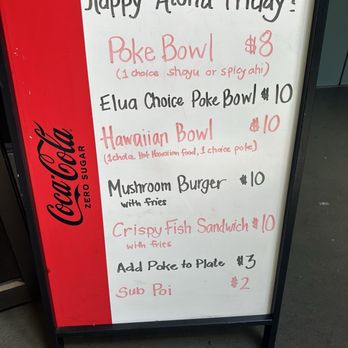 Happy Aloha Friday!
Poke Bowl $8
(1 choice shoyu or spicy ahi)
Elua Choice Poke Bowl $10
Hawaiian Bowl $10
(1 choice Hot Hawaiian food, 1 choice poke)
Mushroom Burger $10
with fries
Crispy Fish Sandwich $10
with fries
Add Poke to Plate $3
Sub Poi $2
Coca-Cola
ZERO SUGAR